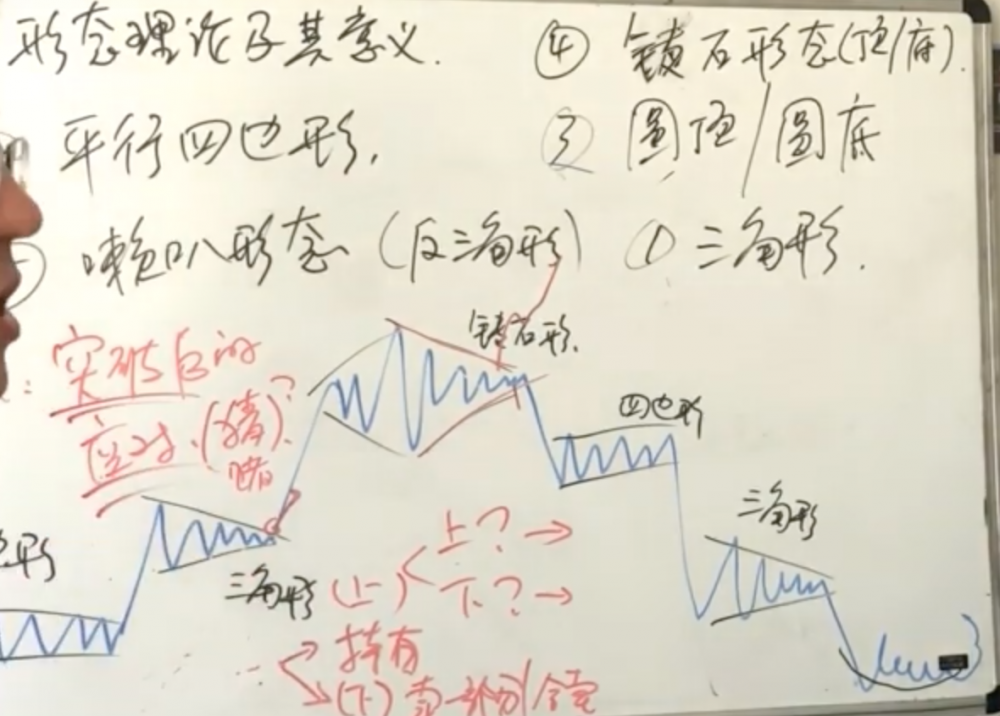 形态理论及其意义.
④ 钻石形态(顶/底).
平行四边形.
③ 圆顶/圆底
喇叭形态 (反三角形)
① 三角形.
钻石形.
突破后的
应对.(猜?
赌
四边形
三角形
边形
三角形
(上)
上?→
下?→
持有
(下) 卖一部分/仓